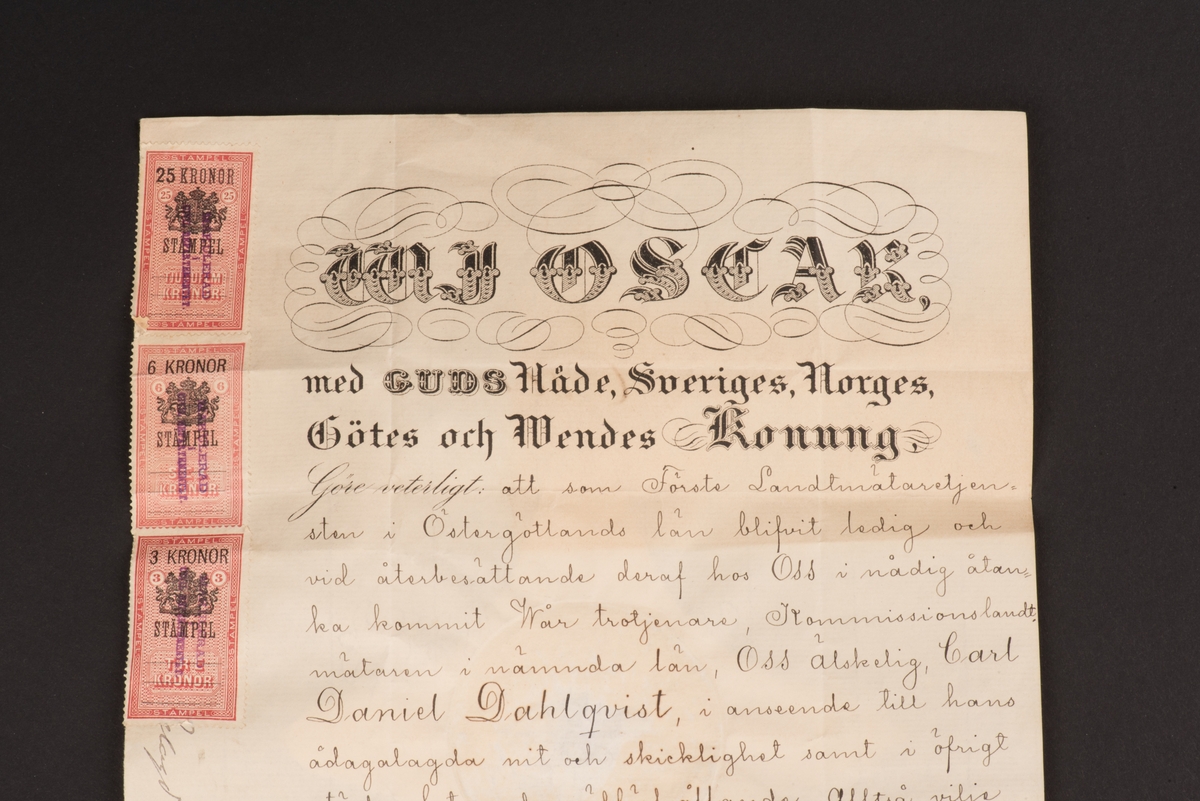 STAMPEL
25 KRONOR
25 25
STÄMPEL
KRONOR
STAMPEL
STAMPEL
6 KRONOR
6 6
STÄMPEL
KRONOR
STAMPEL
STAMPEL
3 KRONOR
3 3
STÄMPEL
TRE
KRONOR
STAMPEL
WJ OSCAR,
med GUDS Nåde, Sveriges, Norges,
Götes och Wendes Konung,
Göre veterligt: att som Förste Landtmätaretjen-
sten i Östergöttlands län blifvit ledig och
vid återbesättande deraf hos Oss i nådig åtan-
ka kommit Wår trotjenare, Kommissionslandt-
mätaren i nämnda län, Oss älskelig, Carl
Daniel Dahlqvist, i anseende till hans
ådagalagda nit och skicklighet samt i öfrigt
Alltså vilje